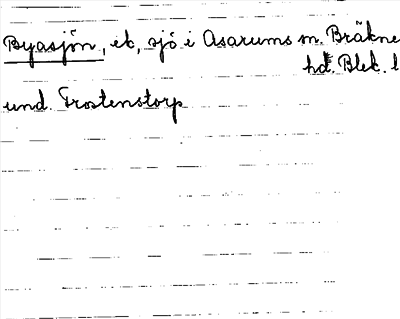 Byasjön, et, sjö i Asarums sn. Bräkne
hd. Blek. l
und. Trostenstorp